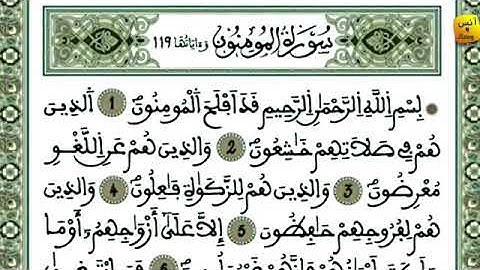 سُورَةُ الْمُومِنُونَ وَءَايَاتُهَا 119
بِسْمِ اِللَّهِ اِلرَّحْمَٰنِ اِلرَّحِيمِ قَدَ اَفْلَحَ اَلْمُومِنُونَ 1 اَلذِينَ
هُمْ فِي صَلَاتِهِمْ خَاشِعُونَ 2 وَالذِينَ هُمْ عَنِ اِللَّغْوِ
مُعْرِضُونَ 3 وَالذِينَ هُمْ لِلزَّكَوٰةِ فَاعِلُونَ 4 وَالذِينَ
هُمْ لِفُرُوجِهِمْ حَافِظُونَ 5 إِلَّا عَلَىٰ أَزْوَاجِهِمُۥٓ أَوْ مَا